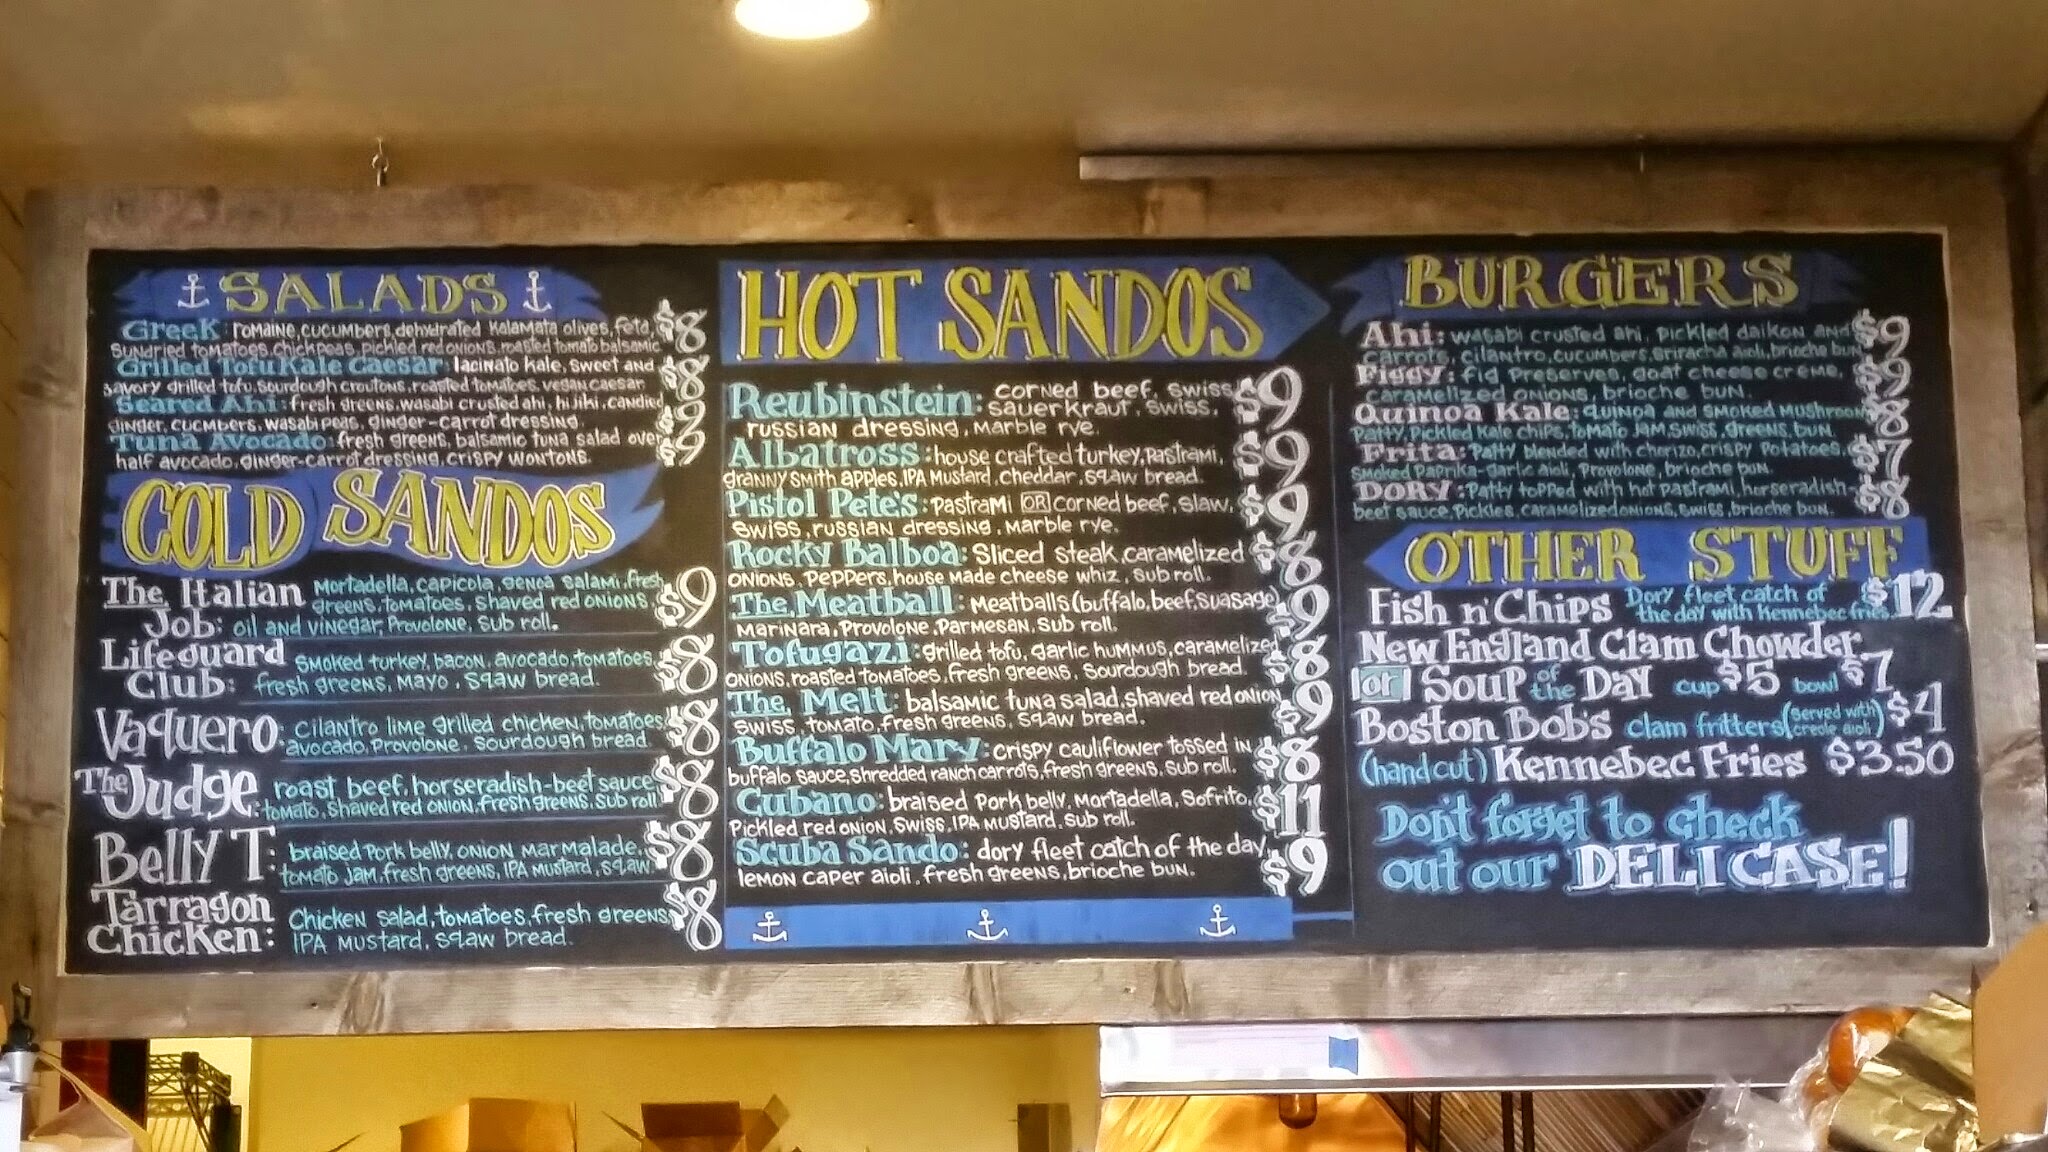 SALADS
Greek: romaine, cucumbers, dehydrated kalamata olives, feta, $8
sundried tomatoes, chickpeas, pickled red onions, roasted tomato balsamic
Grilled Tofu Kale Caesar: lacinato kale, sweet and $8
savory grilled tofu, sourdough croutons, roasted tomatoes, vegan caesar
Seared Ahi: fresh greens, wasabi crusted ahi, hijiki, candied $9
ginger, cucmbers, wasabi peas, ginger-carrot dressing.
Tuna Avocado: fresh greens, balsamic tuna salad over $9
half avocado, ginger-carrot dressing, crispy wontons.
COLD SANDOS
The Italian Job: Mortadella, capicola, genoa salami, fresh $9
greens, tomatoes, shaved red onions
oil and vinegar, Provolone, sub roll.
Lifeguard Club: smoked turkey, bacon, avocado, tomatoes, $8
fresh greens, mayo, squaw bread.
Vaquero: cilantro lime grilled chicken, tomatoes $8
avocado, Provolone, sourdough bread
The Judge: roast beef, horseradish-beet sauce $8
tomato, shaved red onion, fresh greens, sub roll
Belly T: braised pork belly, onion marmalade, $8
tomato jam, fresh greens, IPA mustard, squaw.
Tarragon Chicken: chicken salad, tomatoes, fresh greens $8
IPA mustard, squaw bread.
HOT SANDOS
Reubinstein: corned beef, swiss $9
sauerkraut, swiss,
russian dressing, marble rye.
Albatross: house crafted turkey, pastrami, $9
granny smith apples, IPA mustard, cheddar, squaw bread.
Pistol Pete's: pastrami OR corned beef, slaw, $9
swiss, russian dressing, marble rye.
Rocky Balboa: sliced steak, caramelized $8
onions, peppers, house made cheese whiz, sub roll.
The Meatball: meatballs (buffalo, beef, suasage) $9
marinara, provolone, parmesan, sub roll.
Tofugazi: grilled tofu, garlic hummus, caramelized $8
onions, roasted tomatoes, fresh greens, sourdough bread.
The Melt: balsamic tuna salad, shaved red onion $9
swiss, tomato, fresh greens, squaw bread.
Buffalo Mary: crispy cauliflower tossed in $8
buffalo sauce, shredded ranch carrots, fresh greens, sub roll.
Cubano: braised pork belly, mortadella, sofrito, $11
Pickled red onion, swiss, IPA mustard, sub roll.
Scuba Sando: dory fleet catch of the day, $9
lemon caper aioli, fresh greens, brioche bun.
BURGERS
Ahi: wasabi crusted ahi, pickled daikon and $9
carrots, cilantro, cucumbers, sriracha aioli, brioche bun
Figgy: fig preserves, goat cheese creme, $9
caramelized onions, brioche bun.
Quinoa Kale: quinoa and smoked mushroom $8
patty, pickled kale chips, tomato jam, swiss, greens, bun.
Frita: patty blended with chorizo, crispy potatoes, $7
smoked paprika-garlic aioli, provolone, brioche bun.
Dory: patty topped with hot pastrami, horseradish- $8
beet sauce, pickles, caramelized onions, swiss, brioche bun.
OTHER STUFF
Fish n' Chips Dory fleet catch of $12
the day with kennebec fries.
New England Clam Chowder
or Soup of the Day cup $5 bowl $7
Boston Bobs clam fritters (served with creole aioli) $4
(hand cut) Kennebec Fries $3.50
Don't forget to check
out our DELI CASE!